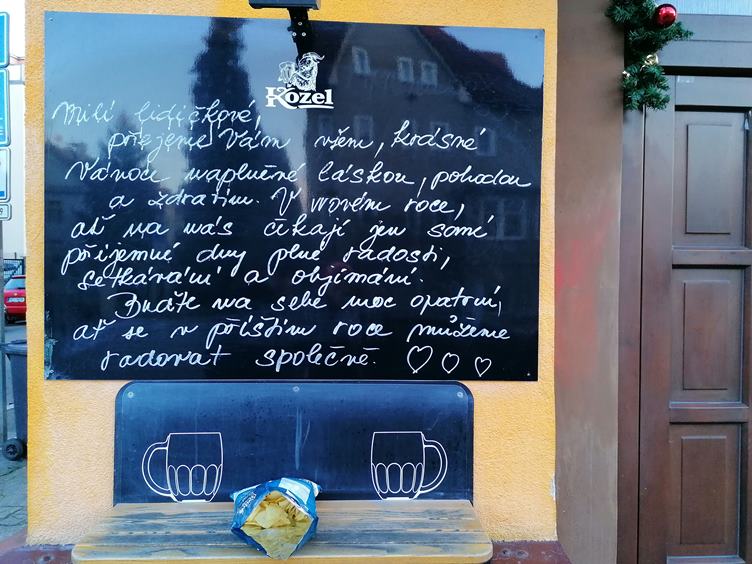 Kozel
Milí lidičkové,
přejeme Vám všem, krásné
Vánoce naplněné láskou, pohodou
a zdravím. V novém roce,
ať na nás čekají jen samé
příjemné dny plné radosti,
setkávání a objímání.
Buďte na sebe moc opatrní,
ať se v příštím roce můžeme
radovat společně.